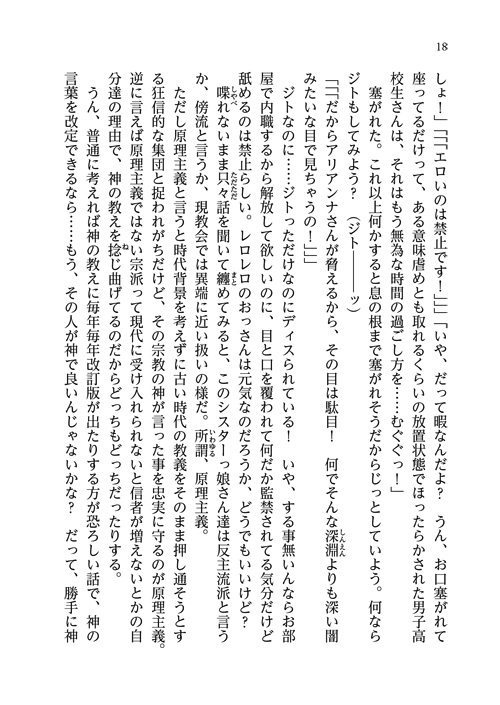 18
しょ！」「「「エロいのは禁止です！」」」「いや、だって暇なんだよ？　うん、お口塞がれて
座ってるだけって、ある意味虐めとも取れるくらいの放置状態でほったらかされた男子高
校生さんは、それはもう無為な時間の過ごし方を……むぐぐっ！」
　塞がれた。これ以上何かすると息の根まで塞がれそうだからじっとしていよう。何なら
ジトもしてみよう？　（ジト――――ッ）
「「「だからアリアンナさんが脅えるから、その目は駄目！　何でそんな深淵よりも深い闇
みたいな目で見ちゃうの！」」」
　ジトなのに……ジトっただけなのにディスられている！　いや、する事無いんならお部
屋で内職するから解放して欲しいのに、目と口を覆われて何だか監禁されてる気分だけど
舐めるのは禁止らしい。レロレロのおっさんは元気なのだろうか、どうでもいいけど？
　喋れないまま只々話を聞いて纏めてみると、このシスターっ娘さん達は反主流派と言う
か、傍流と言うか、現教会では異端に近い扱いの様だ。所謂、原理主義。
　ただし原理主義と言うと時代背景を考えずに古い時代の教義をそのまま押し通そうとす
る狂信的な集団と捉われがちだけど、その宗教の神が言った事を忠実に守るのが原理主義。
逆に言えば原理主義ではない宗派って現代に受け入れられないと信者が増えないとかの自
分達の理由で、神の教えを捻じ曲げてるのだからどっちもどっちだったりする。
　うん、普通に考えれば神の教えに毎年毎年改訂版が出たりする方が恐ろしい話で、神の
言葉を改定できるなら……もう、その人が神で良いんじゃないかな？　だって、勝手に神